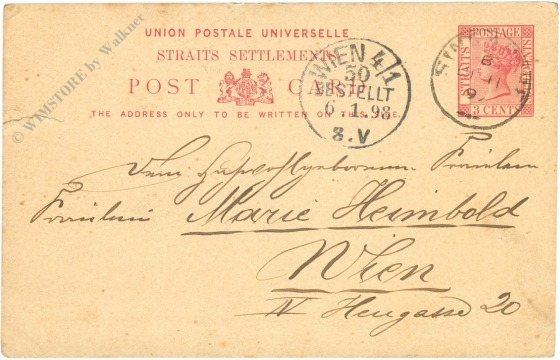 © WMSTORE by Walkner
UNION POSTALE UNIVERSELLE
STRAITS SETTLEMENTS
POST CARD
THE ADDRESS ONLY TO BE WRITTEN ON THIS SIDE.
WIEN 4/1
50
BESTELLT
6.1.98
8.V
POSTAGE
STRAITS SETTLEMENTS
3 CENTS
Dem
Fräulein
Fräulein Marie Heimbold
Wien
IV Heugasse 20